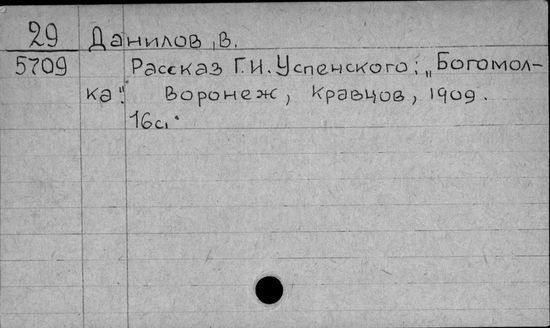 29 Данилов, В.
5709 Рассказ Г.И. Успенского: „Богомол-
ка". Воронеж, Кравцов, 1909.
16с.